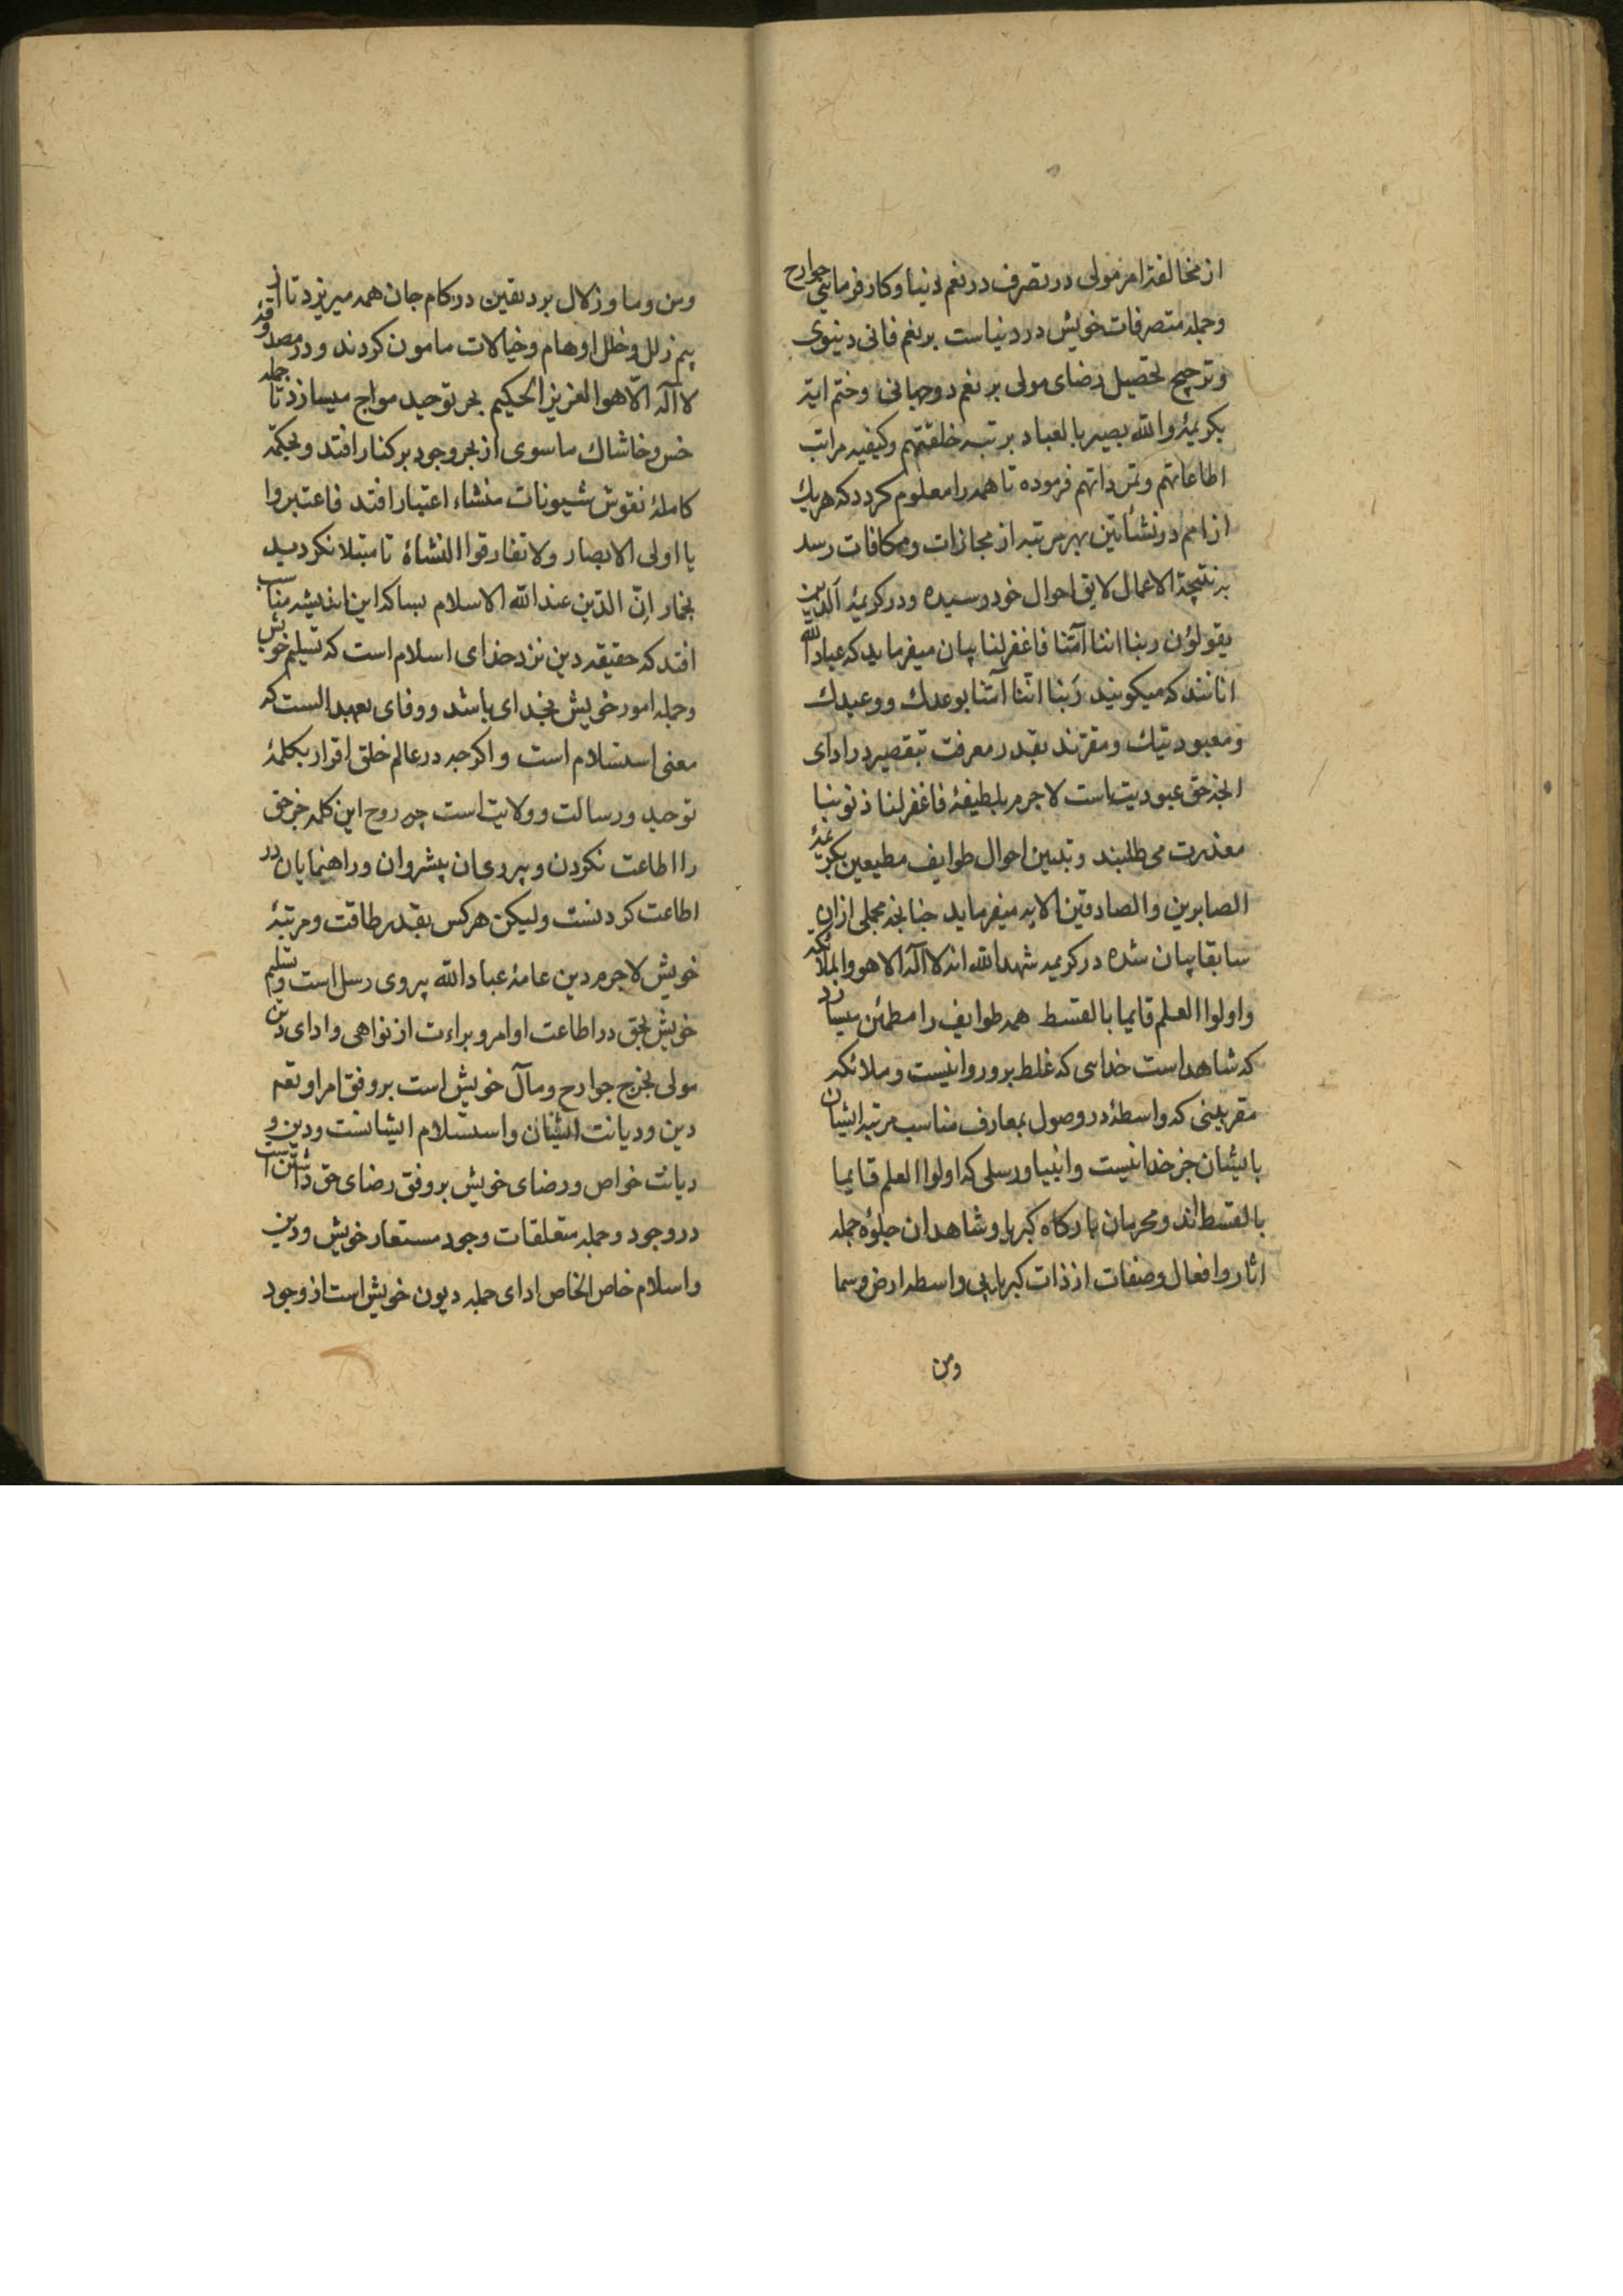 از مخالفة امر مولی در تصرف در نعم دنیا و کارفرمائی جوارح
و جمله متصرفات خویش در دنیاست بر نعم فانی دنیوی
و ترجیح تحصیل رضای مولی بر نعم دوجهانی و ختم ایة
بکریمهٔ والله بصیر بالعباد برتبه خلقتهم وکیفیه مراتب
اطاعاتهم و تمرداتهم فرموده تا همه را معلوم کردد که هریك
از امم در نشأتین بهر مرتبه از مجازات و مکافات رسد
به نتیجة الاعمال لایق احوال خود رسیده و در کریمهٔ الذین
یقولؤن ربنا اننا آمنّا فاغفرلنا بیان میفرماید که عباد الله
انانند که میکویند رَبنا انّنا آمنّا بوعدك و وعیدك
ومعبودیتك و مقرّند بقدر معرفت بتقصیر در ادای
انچه حق عبودیت است لاجرم بلطیفهٔ فاغفرلنا ذنوبنا
معذرت می طلبند و تبیین احوال طوایف مطیعین بکریمهٔ
الصابرین والصادقین الایه میفرماید جنانجه مجملی ازان
سابقا بیان شده در کریمه شهد الله انه لا آله الا هو والملائکه
واولوا العلم قایما بالقسط همه طوایف را مطمئن میسازد
که شاهد است خدایی که غلط برو روا نیست و ملائکه
مقربینی که واسطهٔ در وصول بمعارف مناسب مرتبه ایشان
بایشان جز خدا نیست و انبیا و رسلی که اولوا العلم قایما
بالقسط اند و محرمان بارکاه کبریا و شاهدان جلوهٔ جمله
اثار و افعال و صفات از ذات کبریایی واسطه ارض و سما
ومن
ومن وما و زلال برد یقین در کام جان همه میریزد تا از
بیم زلل و خلل اوهام و خیالات مامون کردند و در مصدوقهٔ
لا آله الّا هو العزیز الحکیم بحر توحید مواج میسازد تا جمله
خس و خاشاك ماسوی از بحر وجود بر کنار افتد و بحکمة
کاملهٔ نقوش شیونات منشاء اعتبار افتد فاعتبروا
یا اولی الابصار ولاتفارقوا النشاة تا مبتلا نکردید
بخمار اِنّ الدّین عند الله الاسلام بسا که این اندیشه مناسب
افتد که حقیقه دین نزد خدای اسلام است که تسلیم خویش
و جمله امور خویش بخدای باشد و وفای بعهد الست که
معنی استسلام است و اکرجه در عالم خلق اقرار بکلمهٔ
توحید و رسالت و ولایت است چه روح این کلمه جز حق
را اطاعت نکردن و پیروی ان پیشروان و راهنمایان در
اطاعت کردنست ولیکن هرکس بقدر طاقت و مرتبهٔ
خویش لاجرم دین عامهٔ عباد الله پیروی رسل است و تسلیم
خویش بحق در اطاعت اوامر و براءت از نواهی و ادای دین
مولی بخرج جوارح و مآل خویش است بر وفق امر او تعه
دین و دیانت ایشان و استسلام ایشانست و دین و
دیانت خواص و رضای خویش بر وفق رضای حق داشتن است
در وجود و جمله متعلقات وجود مستعار خویش و دین
و اسلام خاص الخاص ادای جمله دیون خویش است از وجود